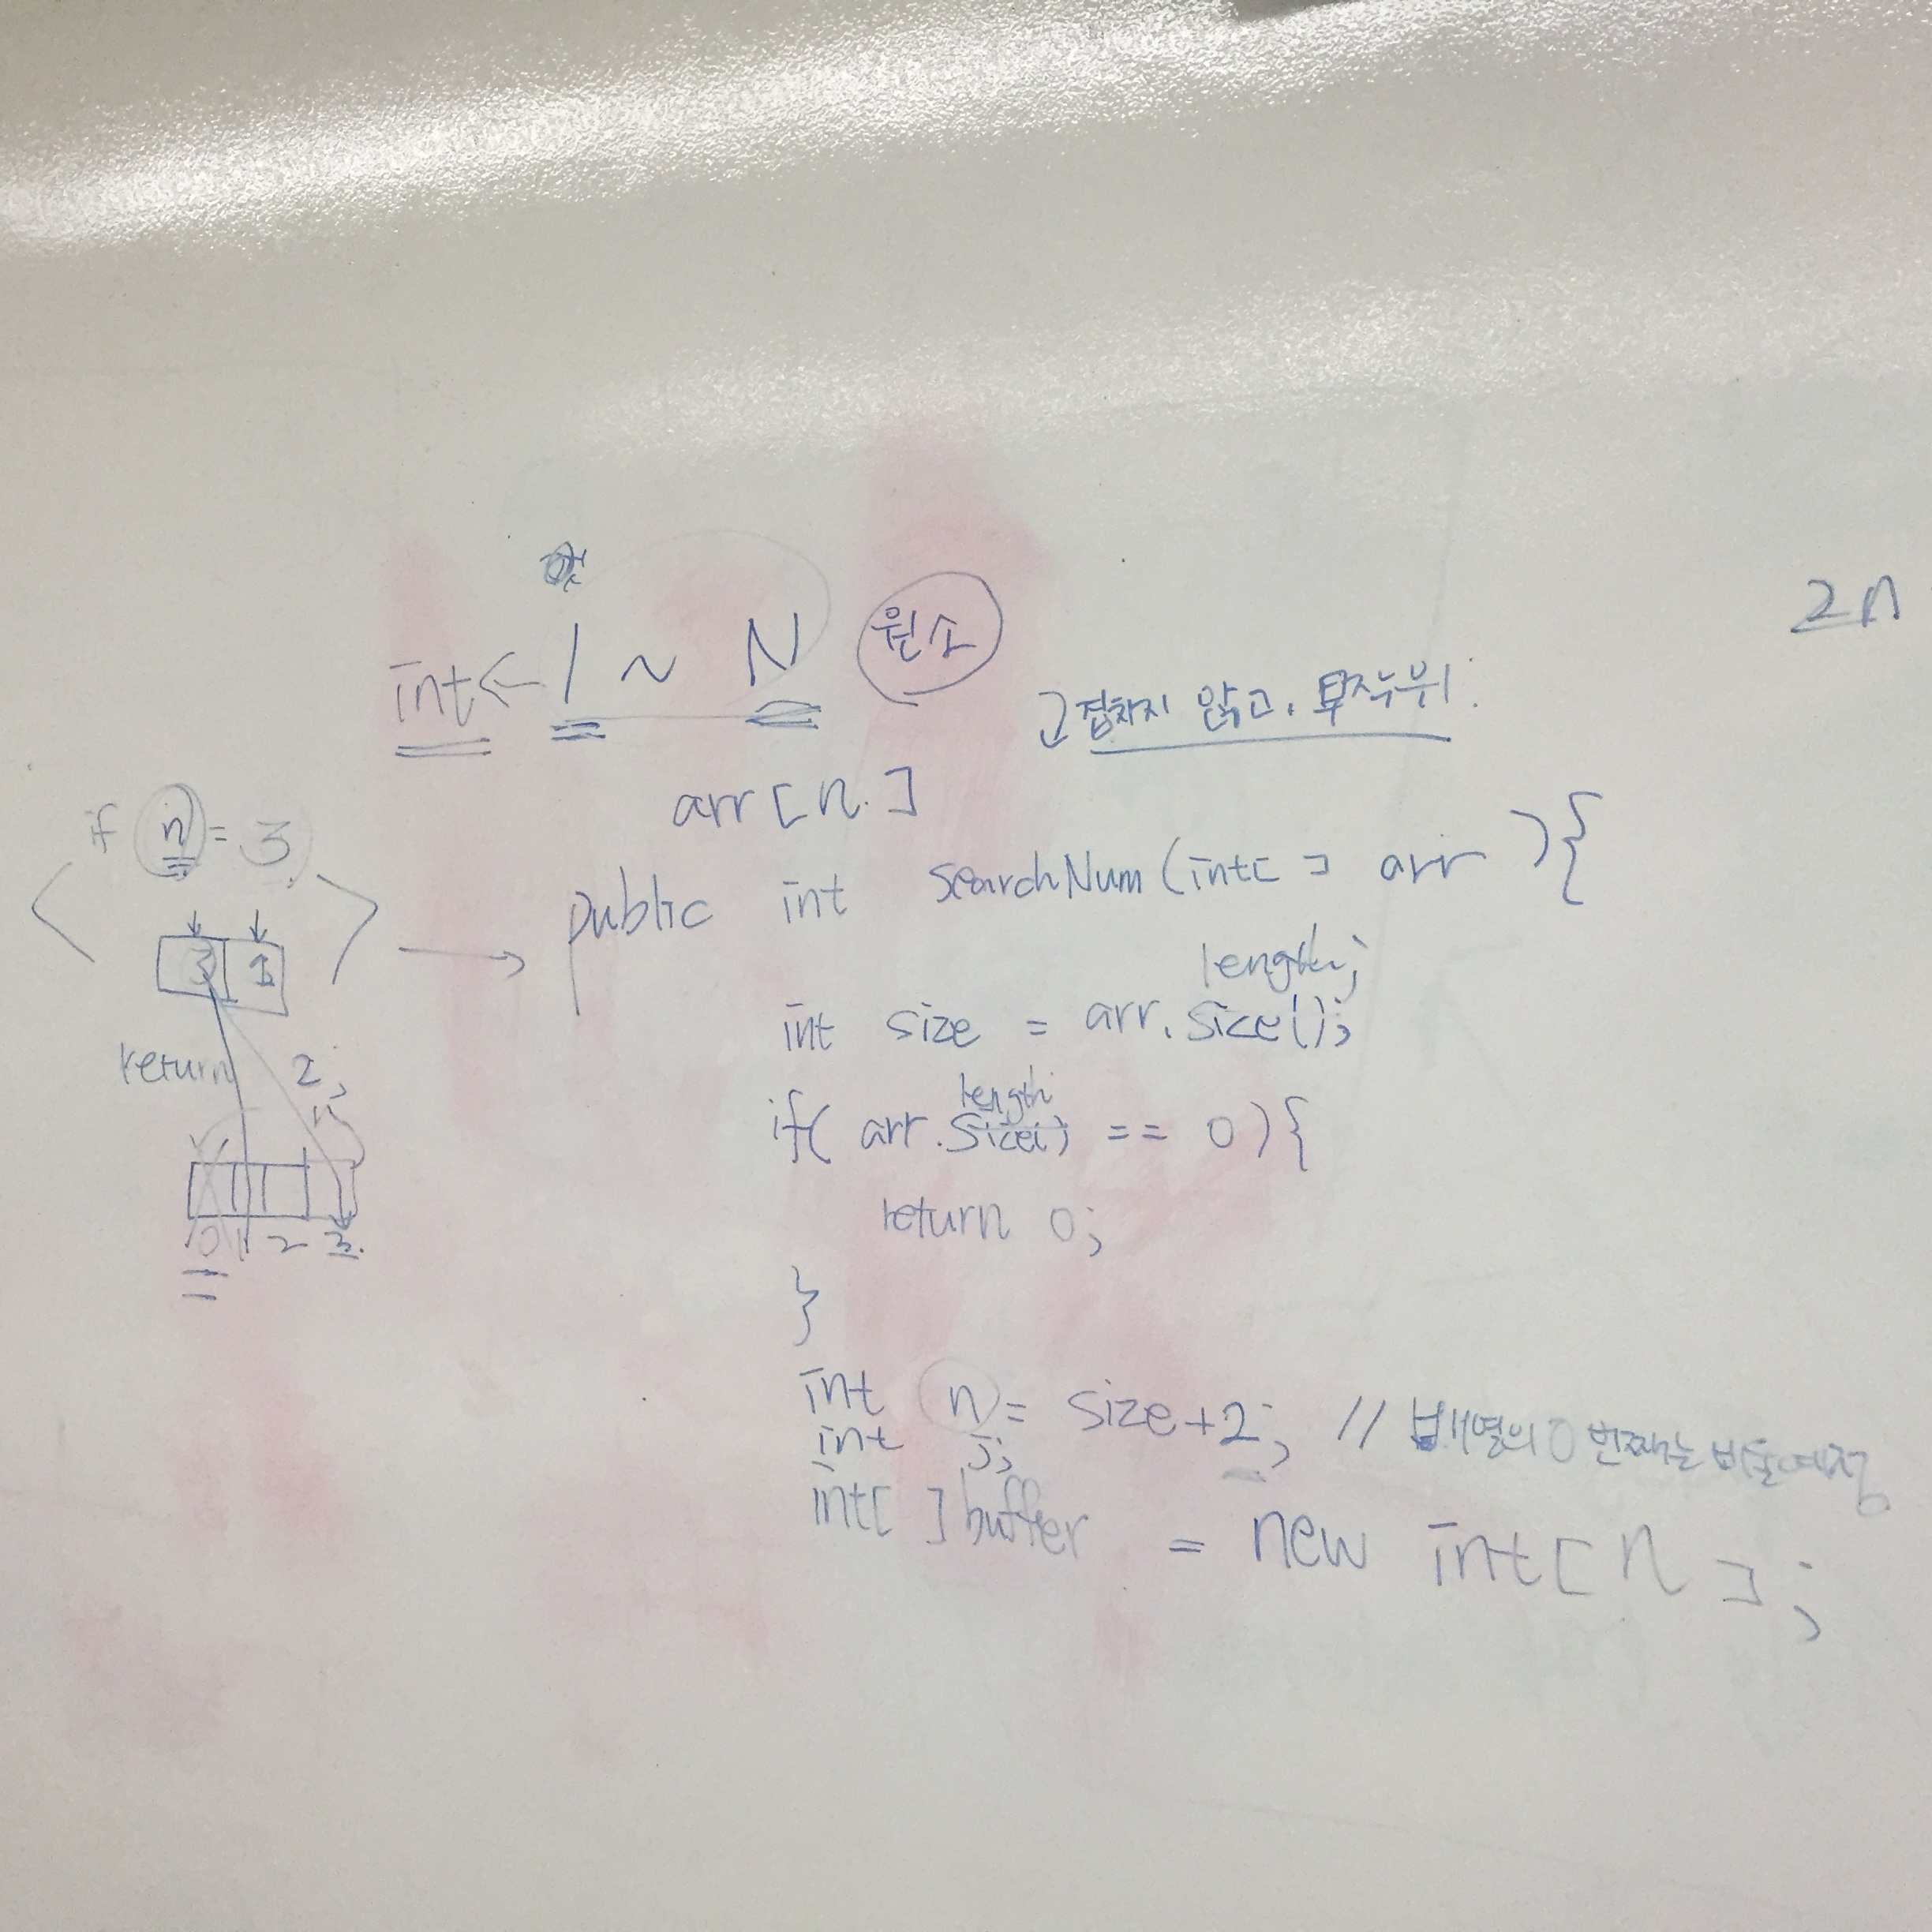 2n
int ← 1 ~ N 원소
겹치지 않고, 무작위
arr[n]
if n = 3
public int searchNum(int[] arr){
3 1
length;
int size = arr.size();
return 2;
length
if( arr.size() == 0){
0 1 2 3
return 0;
}
int n = size+2; // 배열의 0번째는 비울예정
int j;
int[ ] buffer = new int[n];